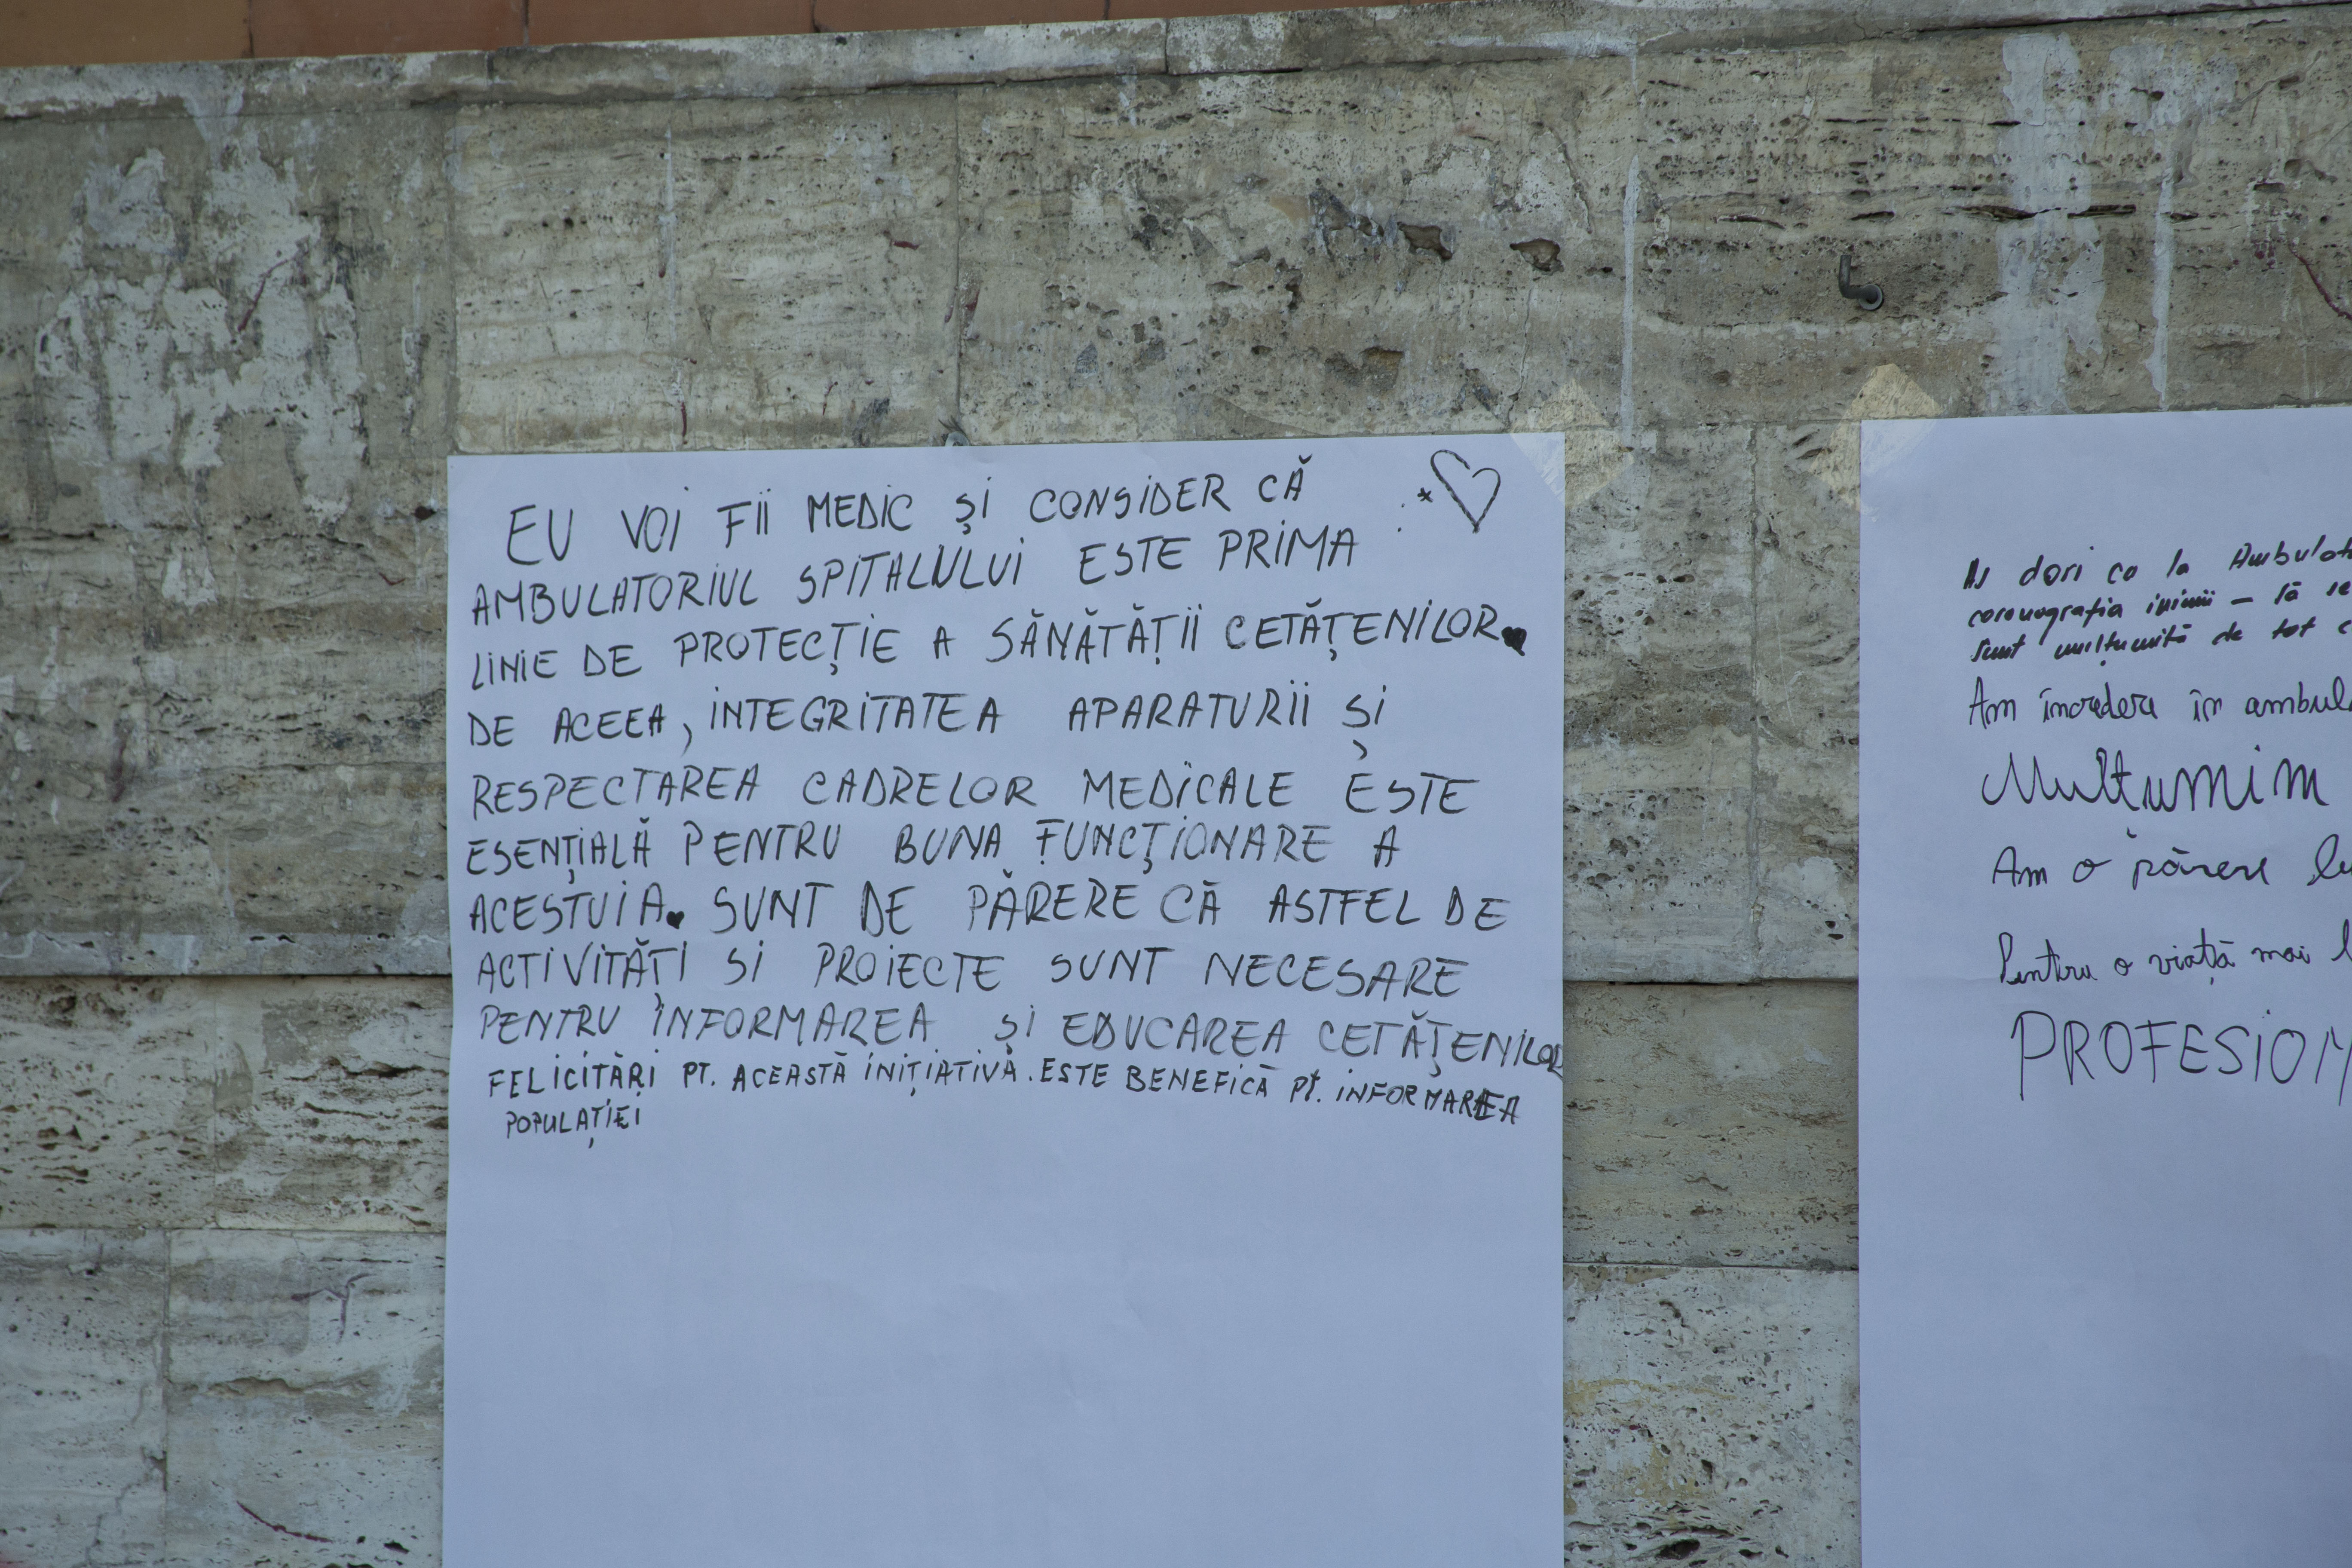 EU VOI FII MEDIC ȘI CONSIDER CĂ
AMBULATORIUL SPITALULUI ESTE PRIMA
LINIE DE PROTECȚIE A SĂNĂTĂȚII CETĂȚENILOR.
DE ACEEA, INTEGRITATEA APARATURII ȘI
RESPECTAREA CADRELOR MEDICALE ESTE
ESENȚIALĂ PENTRU BUNA FUNCȚIONARE A
ACESTUIA. SUNT DE PĂRERE CĂ ASTFEL DE
ACTIVITĂȚI SI PROIECTE SUNT NECESARE
PENTRU INFORMAREA ȘI EDUCAREA CETĂȚENILOR
FELICITĂRI PT. ACEASTĂ INIȚIATIVĂ. ESTE BENEFICĂ PT. INFORMAREA
POPULAȚIEI
As dori ca la Ambulat
coronografia inimii - să se
Sunt mulțumită de tot c
Am încredere în ambul
Multumim
Am o părere
Pentru o viață mai
PROFESION